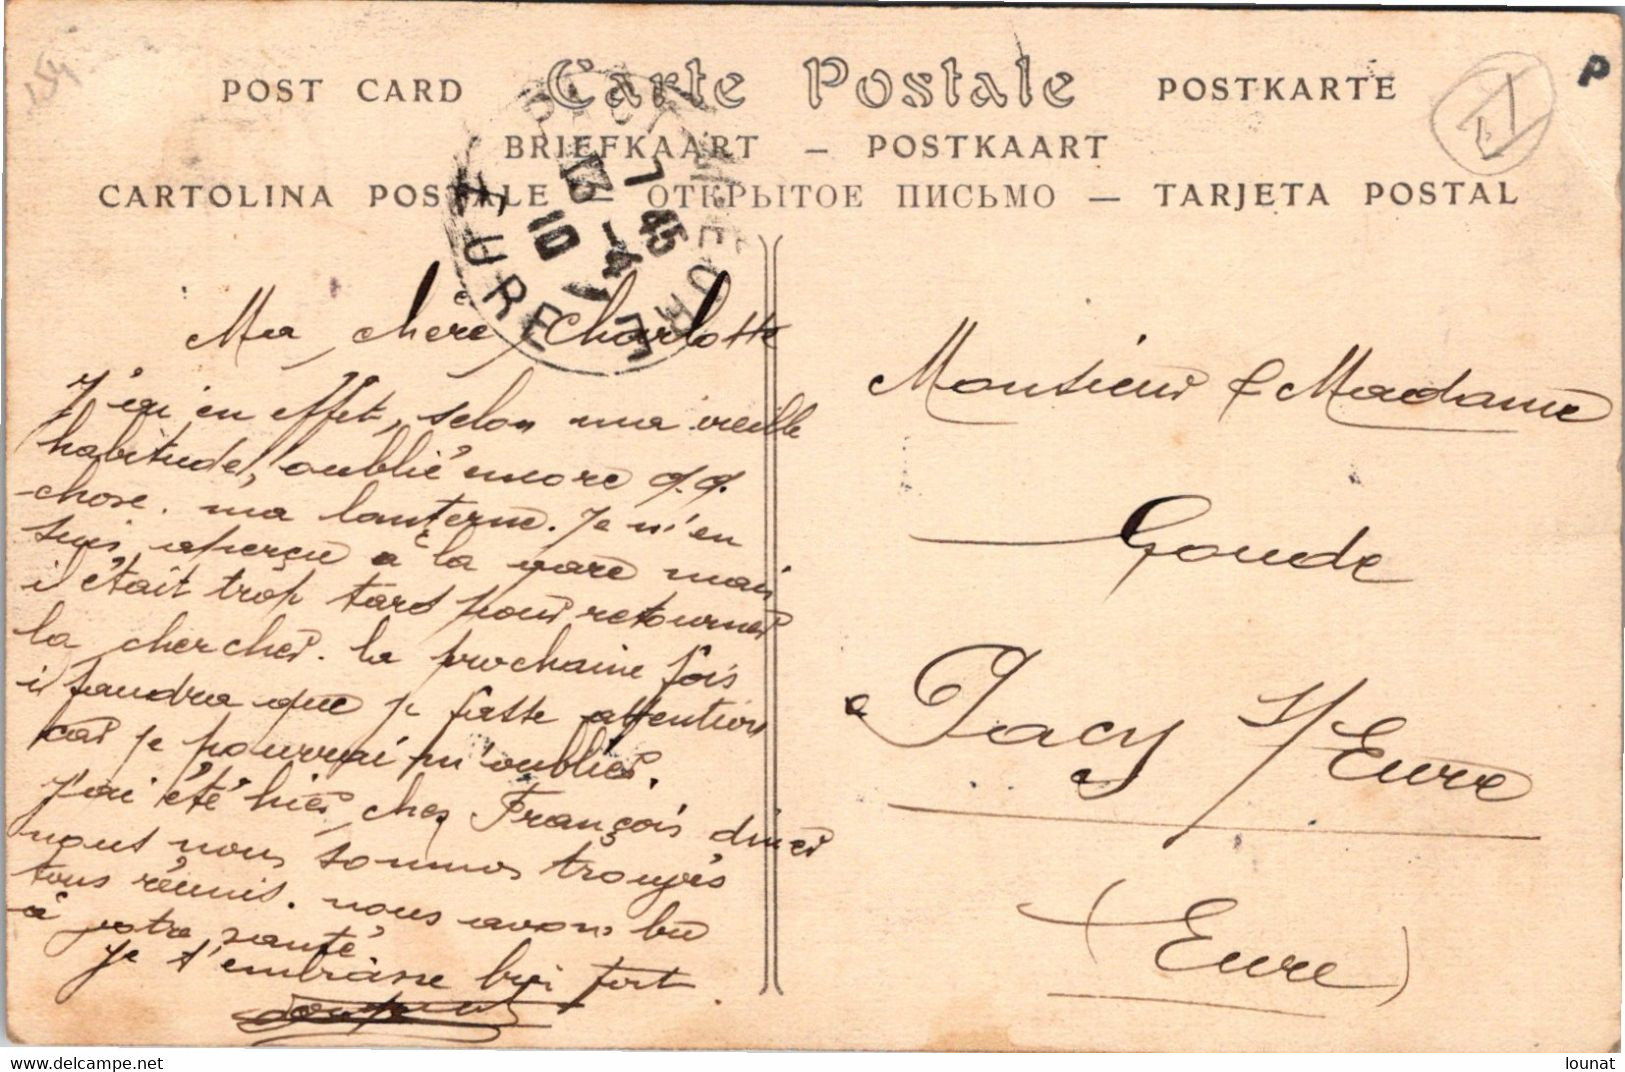 POST CARD Carte Postale POSTKARTE
P
BRIEFKAART – POSTKAART
CARTOLINA POSTALE – ОТКРЫТОЕ ПИСЬМО – TARJETA POSTAL
PACY SUR EURE
EURE
7 45
13 -4
10
Ma chère Charlotte
J'ai en effet, selon ma vieille
habitude, oublié encore q.q.
chose. ma lanterne. Je m'en
suis aperçu à la gare mais
il était trop tard pour retourner
la chercher. la prochaine fois
il faudra que je fasse attention
car je pourrai m'oublier.
J'ai été hier chez François diner
nous nous sommes trouvés
tous réunis. nous avons bu
à votre santé
Je t'embrasse bien fort
Monsieur & Madame
Goude
à Pacy s/ Eure
(Eure)
lounat